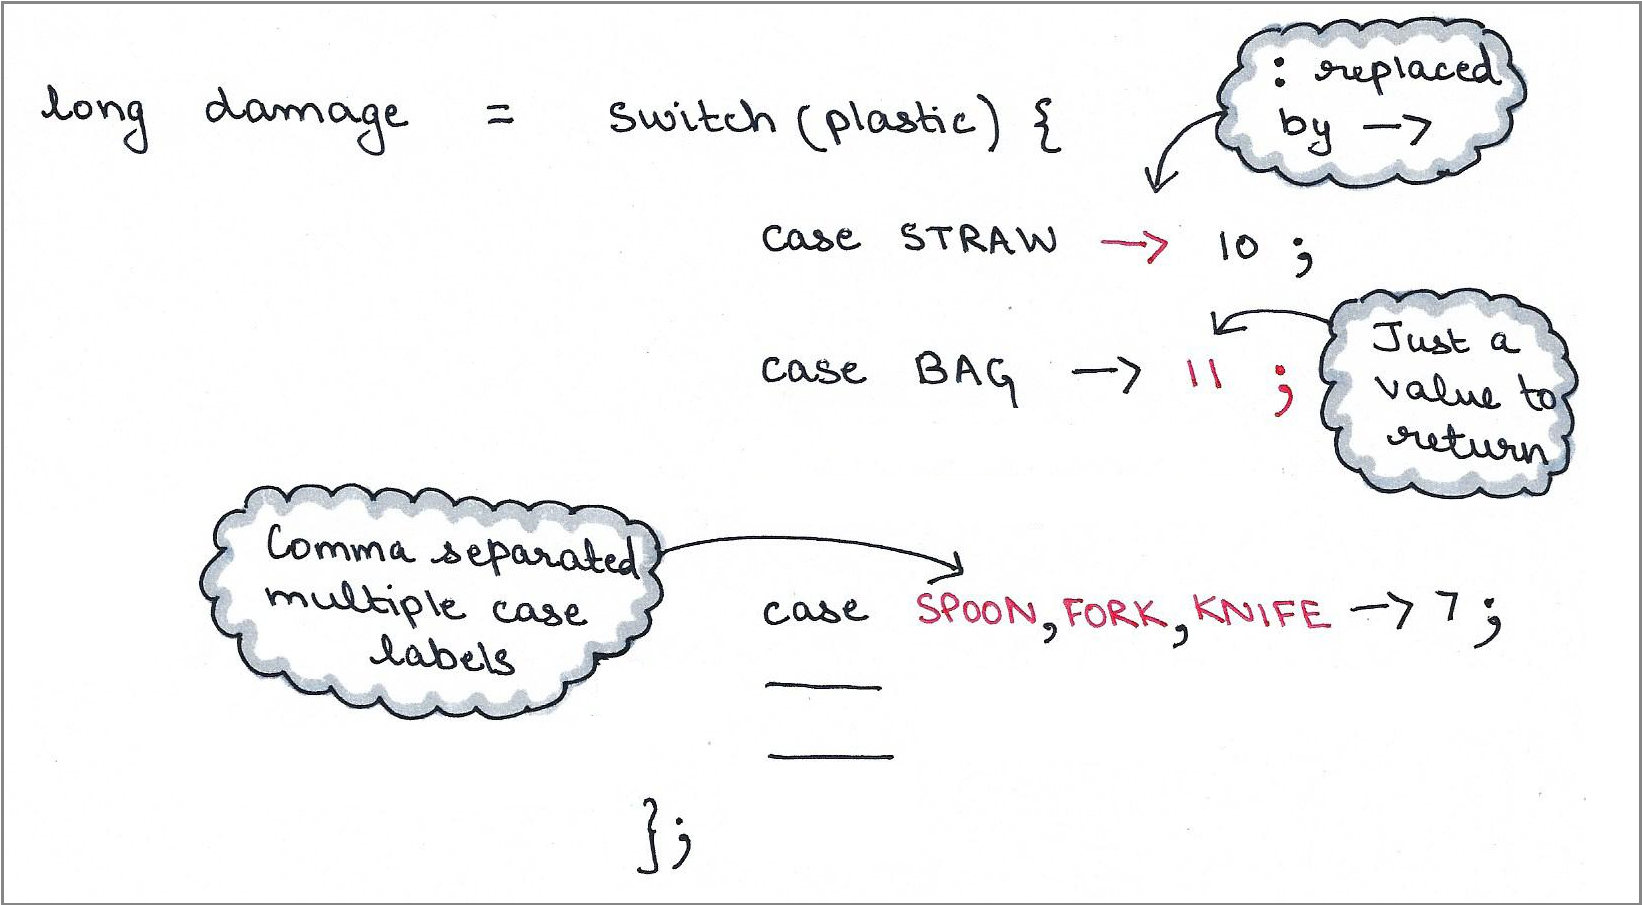 long damage = switch (plastic) {
: replaced
by —>
case STRAW —> 10 ;
case BAG —> 11 ;
Just a
value to
return
Comma separated
multiple case
labels
case SPOON, FORK, KNIFE —> 7 ;
};